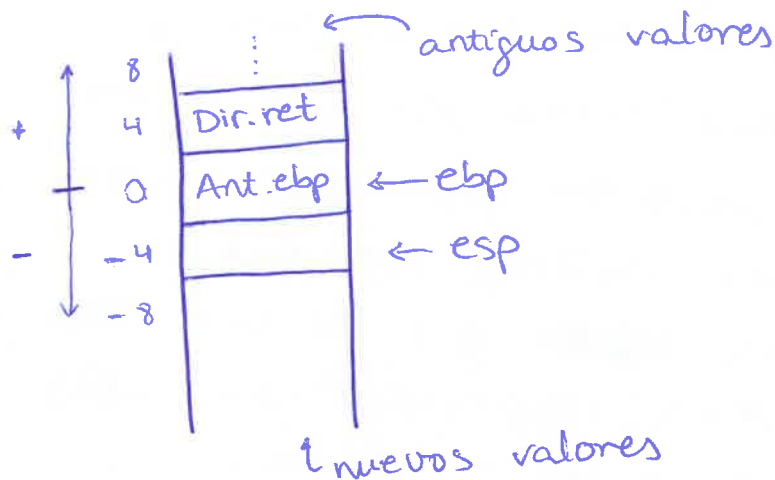 antiguos valores
8
+ 4 Dir.ret
0 Ant.ebp ebp
- -4 esp
-8
nuevos valores